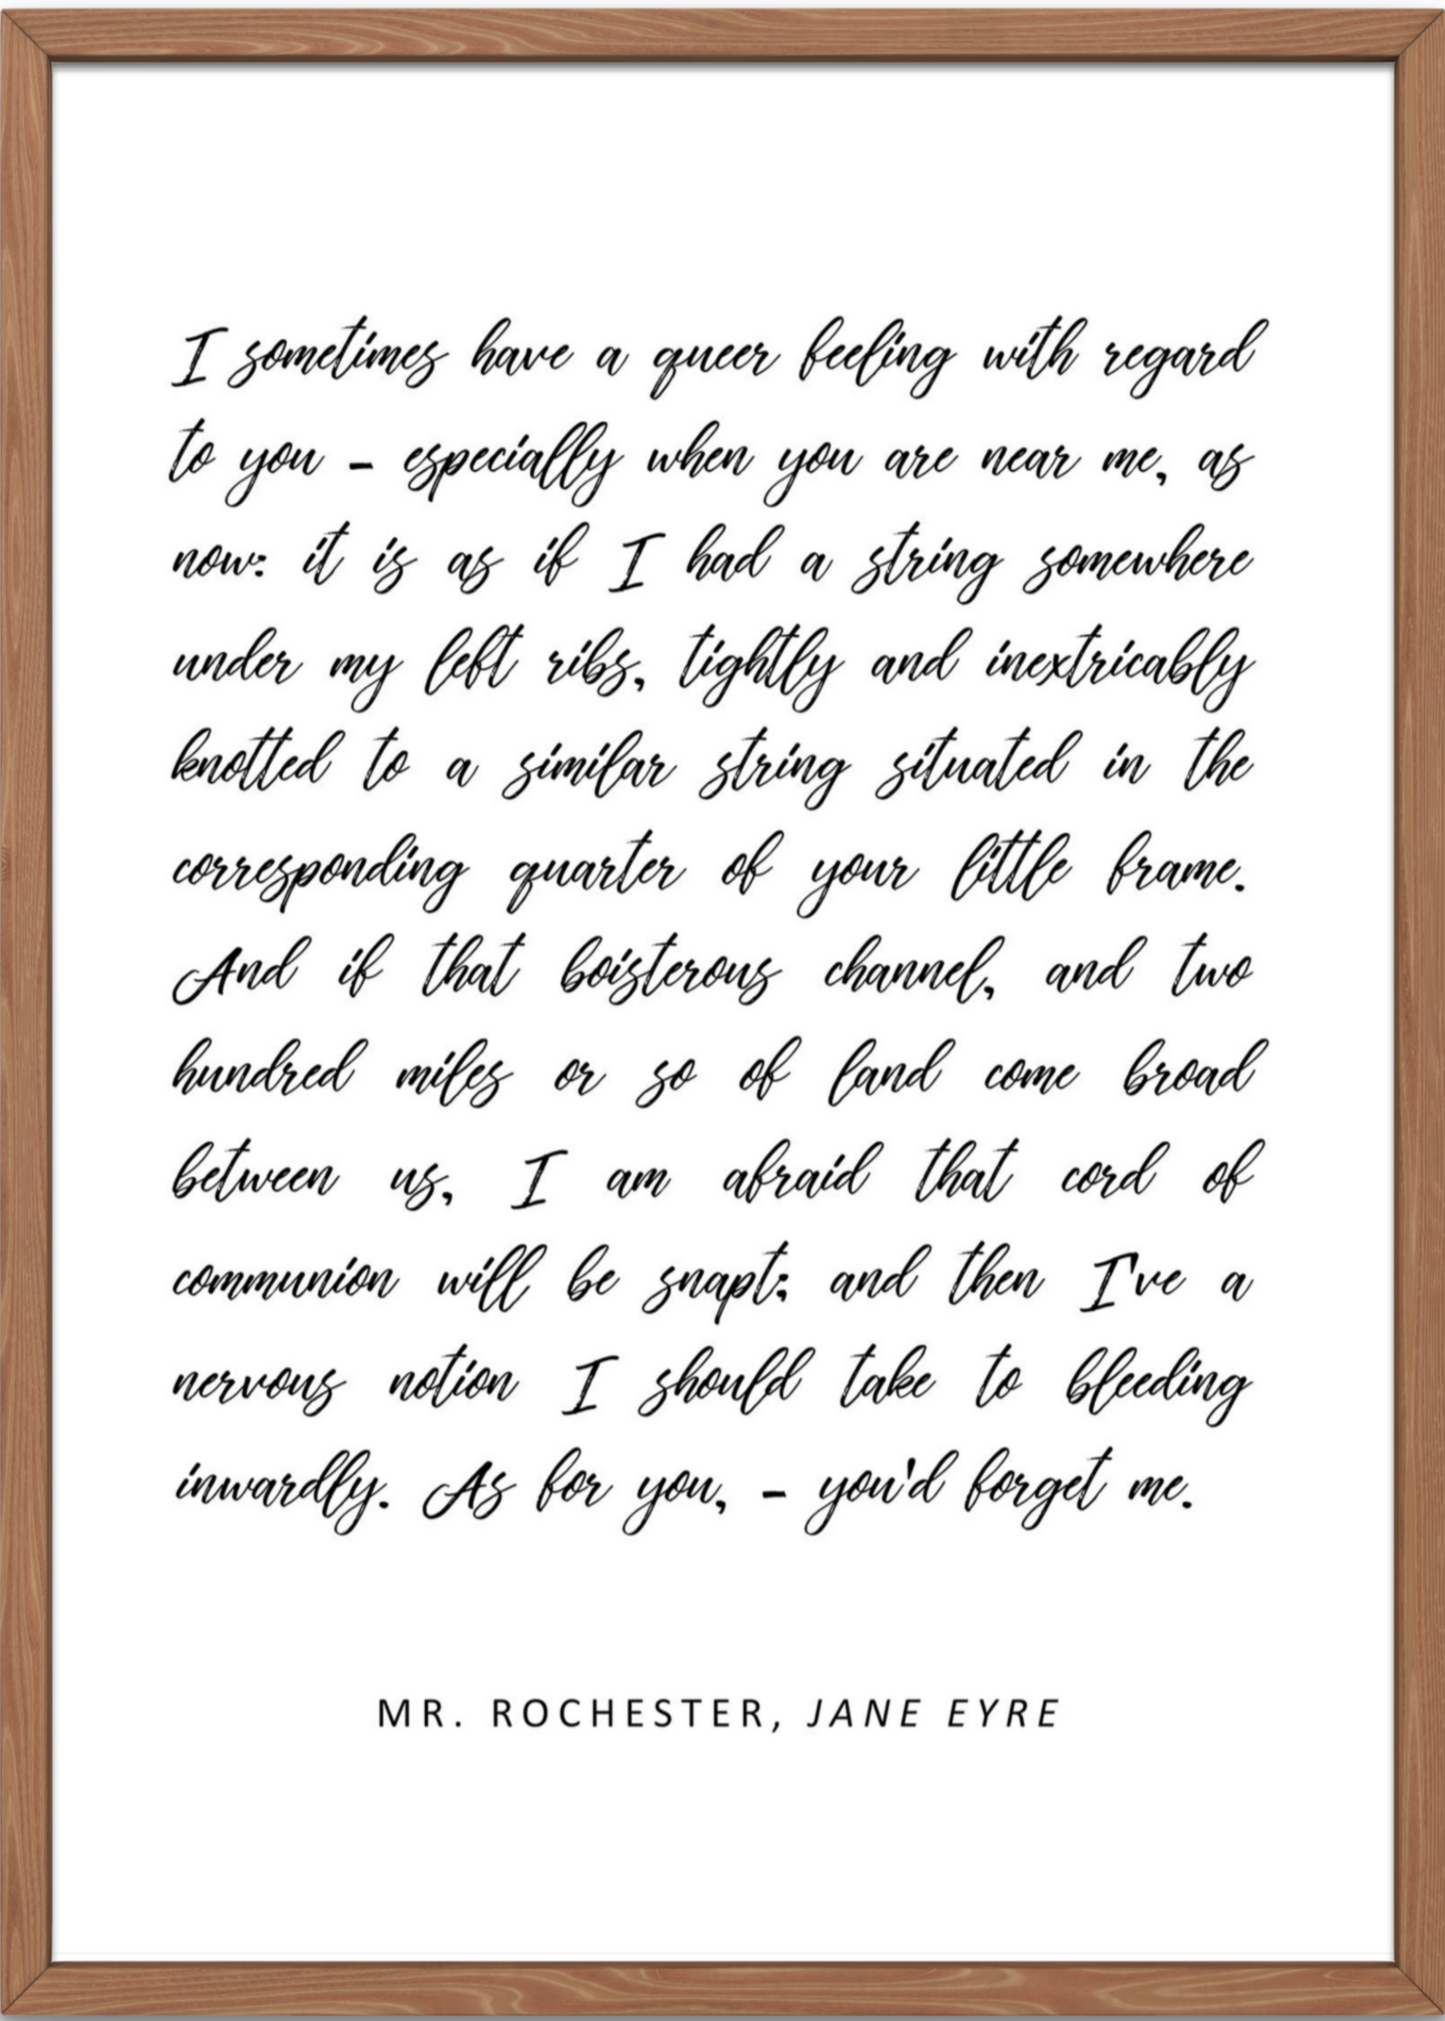 I sometimes have a queer feeling with regard
to you - especially when you are near me, as
now: it is as if I had a string somewhere
under my left ribs, tightly and inextricably
knotted to a similar string situated in the
corresponding quarter of your little frame.
And if that boisterous channel, and two
hundred miles or so of land come broad
between us, I am afraid that cord of
communion will be snapt; and then I've a
nervous notion I should take to bleeding
inwardly. As for you, - you'd forget me.
MR. ROCHESTER, JANE EYRE